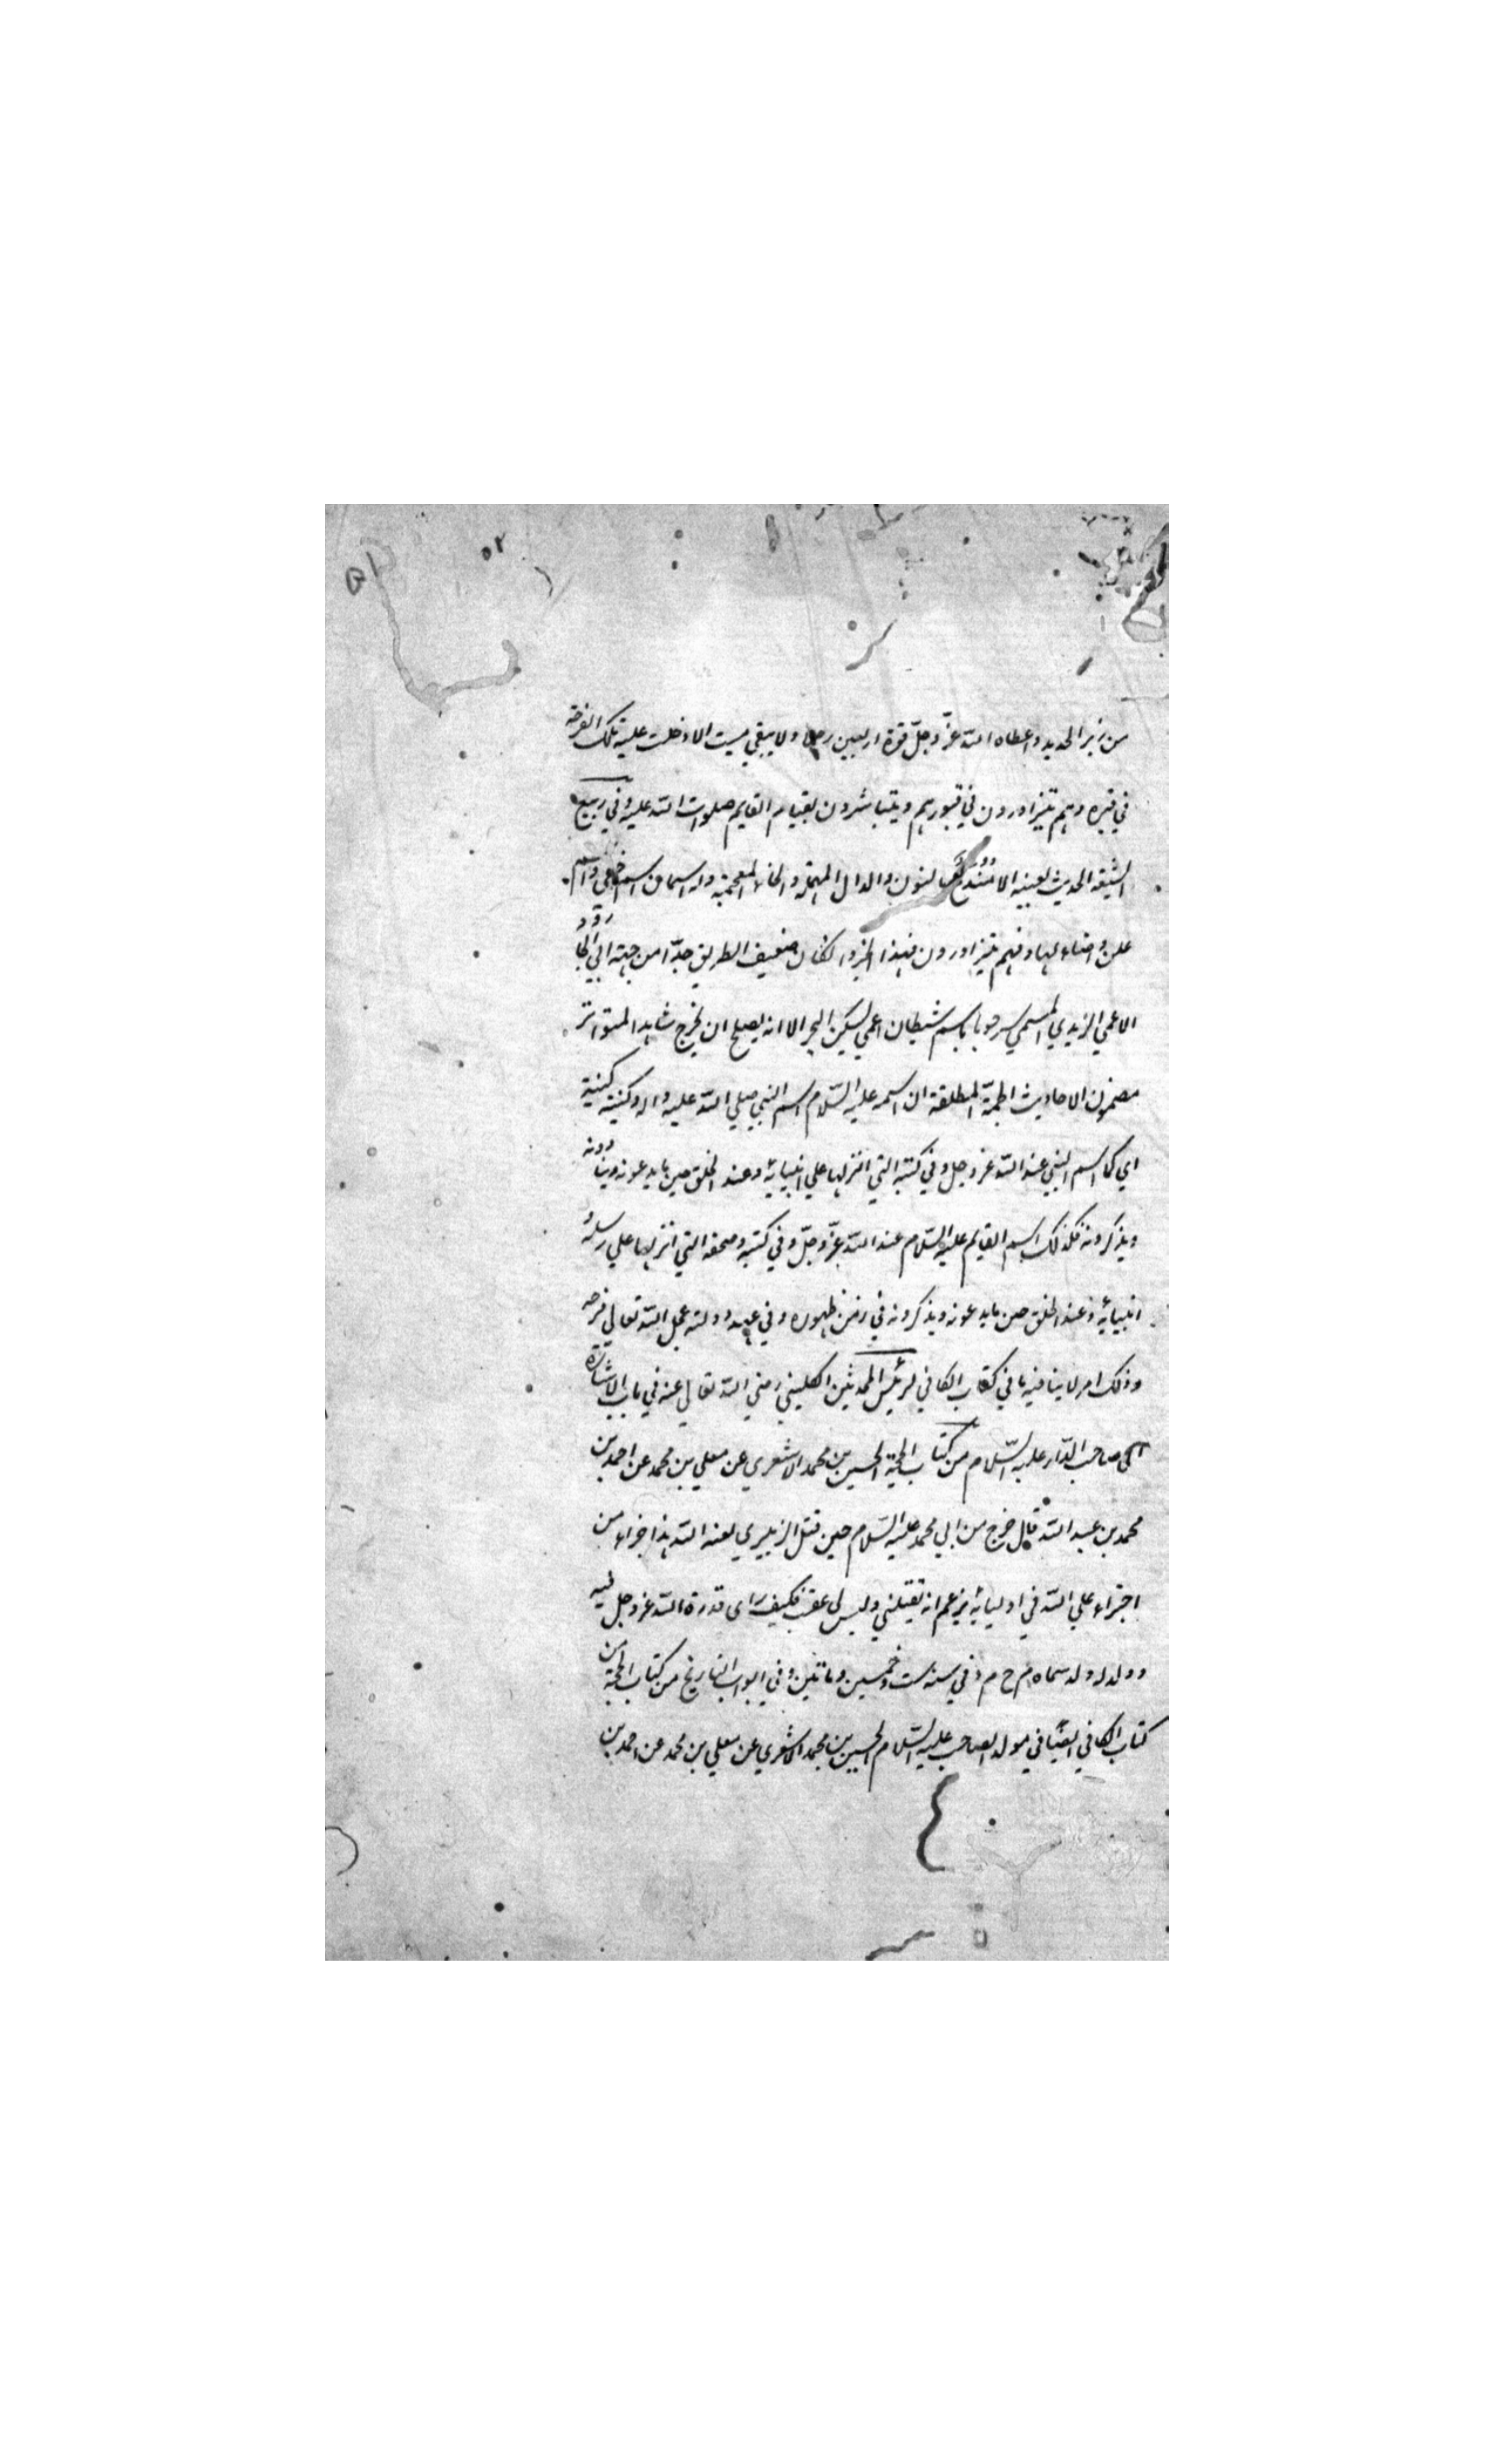 ٥٢
من زبر الحديد واعطاه الله عزّ وجلّ قوة اربعين رجلا ولا يبقي ميت الا دخلت عليه تلك الفرحة
في قبره وهم يتزاورون في قبورهم ويتباشرون بقيام القايم صلوات الله عليه وفي ربيع
الشيعة الحديث بعينه الا بالنون والدال المهملة والخاء المعجمة وله اسمان اسم يخفي واسم
علن واضاء لها وفيهم يتزاورون فهذا الخبر وان كان ضعيف الطريق جدّا من جهة ابي الجارود
الاعمي الزيدي المسمي سرحوبا باسم شيطان اعمي يسكن البحر الا انه يصلح ان يخرج شاهد المتواتر
مضمون الاحاديث الجمّة المطلقة ان اسمه عليه السّلام اسم النبي صلي الله عليه واله وكنيته كنيته
اي كما اسم النبي عند الله عز وجل وفي كتبه التي انزلها علي انبيائه وعند الخلق حين ما يدعونه وينادونه
ويذكرونه فكذلك اسم القايم عليه السّلام عند الله عزّ وجلّ وفي كتبه وصحفه التي انزلها علي رسله و
انبيائه وعند الخلق حين ما يدعونه ويذكرونه في زمن ظهوره وفي عهد دولته عجل الله تعالي فرجه
وذلك امر لا ينافيه ما في كتاب الكافي لرئيس المحدثين الكليني رضي الله تعالي عنه في باب الاشارة
الي صاحب الدّار عليه السّلام من كتاب الحجة الحسين بن محمد الاشعري عن معلي بن محمد عن احمد بن
محمد بن عبد الله قال خرج من ابي محمد عليه السّلام حين قتل الزبيري لعنه الله هذا جزاء من
اجتراء علي الله في اوليائه يزعم انه يقتلني وليس لي عقب فكيف راى قدرة الله عز وجل فيه
وولد له ولد سماه م ح م د في سنة ست وخمسين ومائتين وفي ابواب التاريخ من كتاب الحجة من
كتاب الكافي ايضا في مولد الصاحب عليه السّلام الحسين بن محمد الاشعري عن معلي بن محمد عن احمد بن